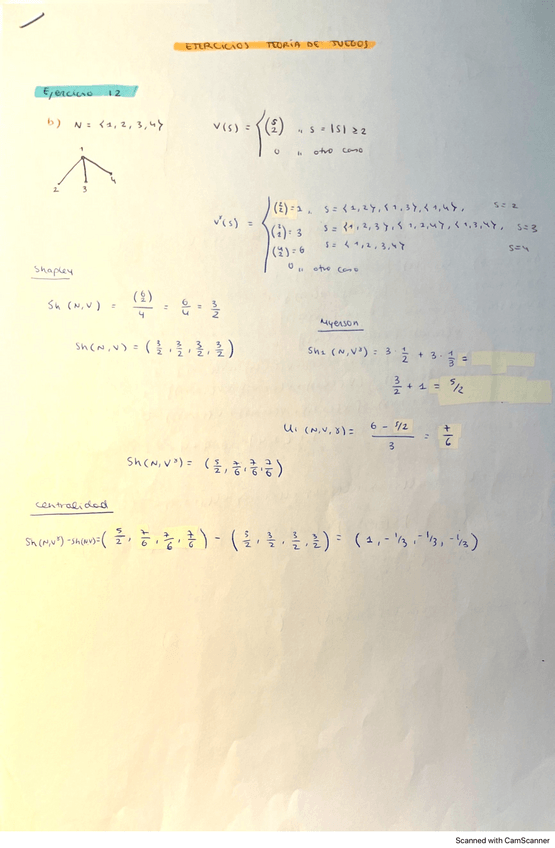 EJERCICIOS TEORÍA DE JUEGOS
Ejercicio 12
b) N = {1, 2, 3, 4}
V(s) = { (s 2) ,, s = |S| ≥ 2
0 ,, otro caso
1
2 3 4
V^γ(s) = { (2 2) = 1 ,, S = {1, 2}, {1, 3}, {1, 4}, s = 2
= 3 S = {1, 2, 3}, {1, 2, 4}, {1, 3, 4}, s = 3
(4 2) = 6 S = {1, 2, 3, 4} s = 4
0 ,, otro caso
Shapley
Sh (N, V) = = 6/4 = 3/2
Sh (N, V) = (3/2, 3/2, 3/2, 3/2)
Myerson
Sh1 (N, V^γ) = 3 · 1/2 + 3 · 1/3 =
3/2 + 1 = 5/2
Ui (N, V, γ) = (6 - 5/2)/3 = 7/6
Sh (N, V^γ) = (5/2, 7/6, 7/6, 7/6)
Centralidad
Sh(N, V^γ) - Sh(N, V) = (5/2, 7/6, 7/6, 7/6) - (3/2, 3/2, 3/2, 3/2) = (1, -1/3, -1/3, -1/3)
Scanned with CamScanner